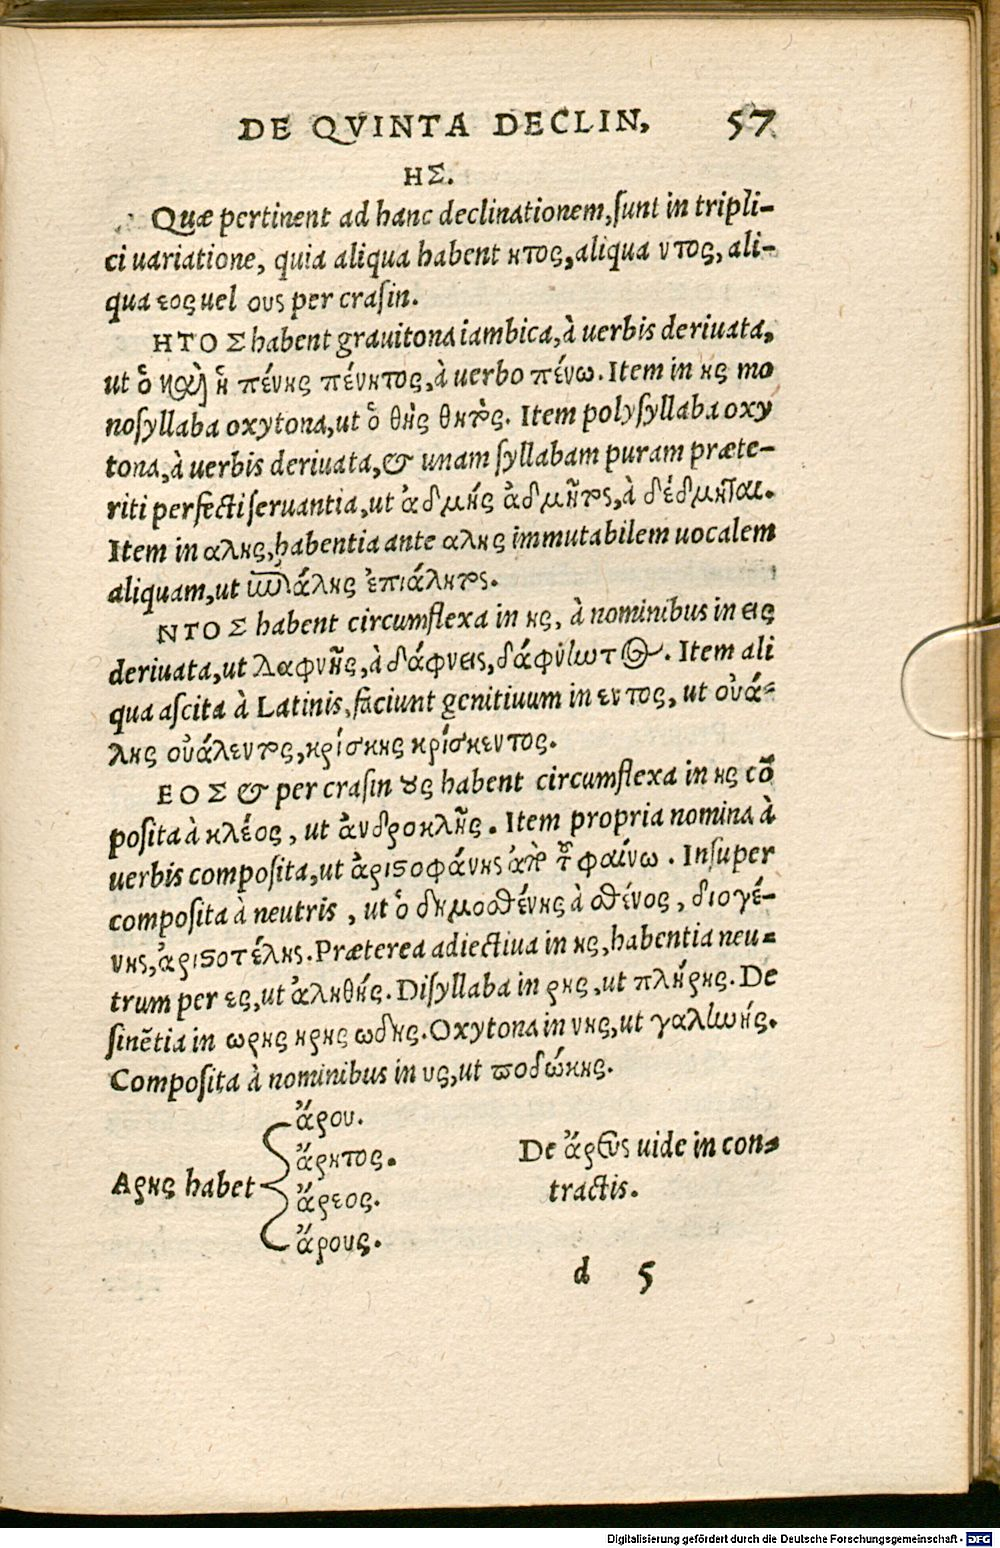 DE QVINTA DECLIN, 57
ΗΣ.
Quæ pertinent ad hanc declinationem, sunt in tripli-
ci uariatione, quia aliqua habent ητος, aliqua ντος, ali-
qua εος uel ους per crasin.
ΗΤΟΣ habent grauitona iambica, à uerbis deriuata,
ut ὁ καὶ ἡ πένης πένητος, à uerbo πένω. Item in ης mo
nosyllaba oxytona, ut ὁ θὴς θητὸς. Item polysyllaba oxy
tona, à uerbis deriuata, & unam syllabam puram præte-
riti perfecti seruantia, ut ἀδμής ἀδμῆτος, à δέδμηται.
Item in αλης, habentia ante αλης immutabilem uocalem
aliquam, ut ἐπιάλης ἐπιάλητος.
ΝΤΟΣ habent circumflexa in ης, à nominibus in εις
deriuata, ut λαφνῆς, à δάφνεις, δάφνωντος. Item ali
qua ascita à Latinis, faciunt genitiuum in εντος, ut οὐά-
λης οὐάλεντος, κρίσκης κρίσκεντος.
ΕΟΣ & per crasin ȣς habent circumflexa in ης cõ
posita à κλέος, ut ἀνδροκλῆς. Item propria nomina à
uerbis composita, ut ἀριϛοφάνης ἀπὸ τοῦ φαίνω. Insuper
composita à neutris, ut ὁ δημοσθένης à σθένος, διογέ-
νης, ἀριϛοτέλης. Præterea adiectiua in ης, habentia neu-
trum per ες, ut ἀληθής. Disyllaba in ρης, ut πλήρης. De
sinẽtia in ωρης ηρης ωδης. Oxytona in νης, ut γαληνής.
Composita à nominibus in υς, ut ποδώκης.
ἄρου.
ἄρητος.
Αρης habet
ἄρεος.
ἄρους.
De ἄρευς uide in con-
tractis.
d 5
Digitalisierung gefördert durch die Deutsche Forschungsgemeinschaft - DFG